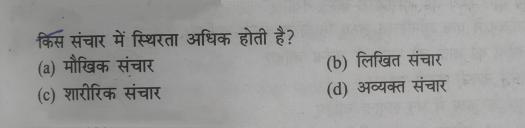 किस संचार में स्थिरता अधिक होती है?
(a) मौखिक संचार (b) लिखित संचार
(c) शारीरिक संचार (d) अव्यक्त संचार